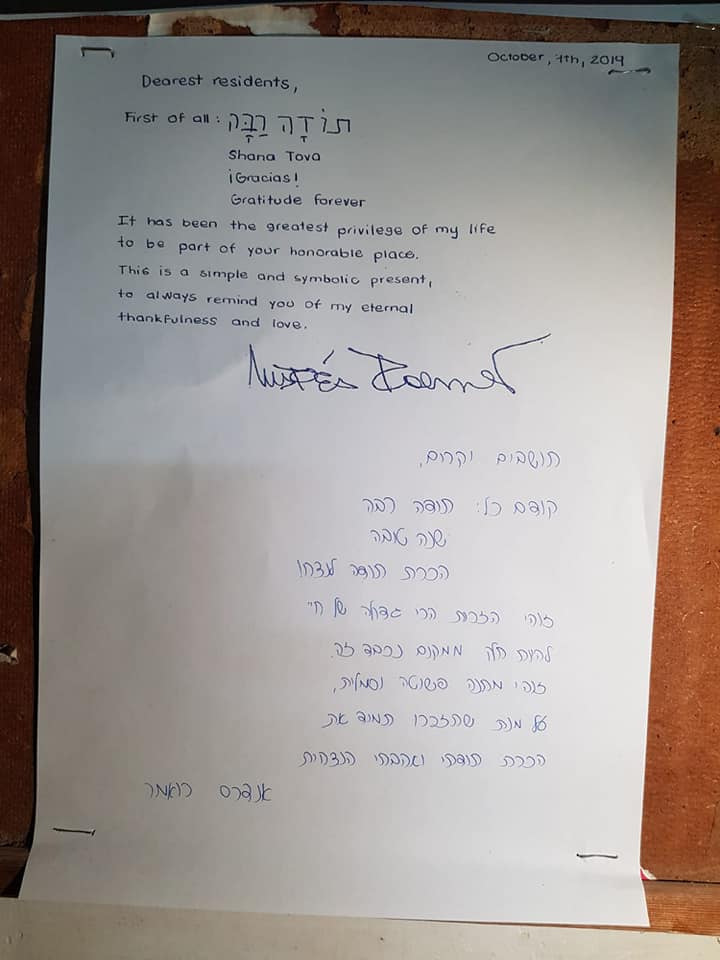 October, 7th, 2019
Dearest residents,
First of all: תוֹדָה רַבָּה
Shana Tova
¡Gracias!
Gratitude forever
It has been the greatest privilege of my life
to be part of your honorable place.
This is a simple and symbolic present,
to always remind you of my eternal
thankfulness and love.
תושבים יקרים,
קודם כל: תודה רבה
שנה טובה
הכרת תודה לנצח!
זוהי הזכות הכי גדולה של חיי
להיות חלק ממקום נכבד זה.
זוהי מתנה פשוטה וסמלית,
על מנת שתזכרו תמיד את
הכרת תודתי ואהבתי הנצחית
אנדרס רואמר